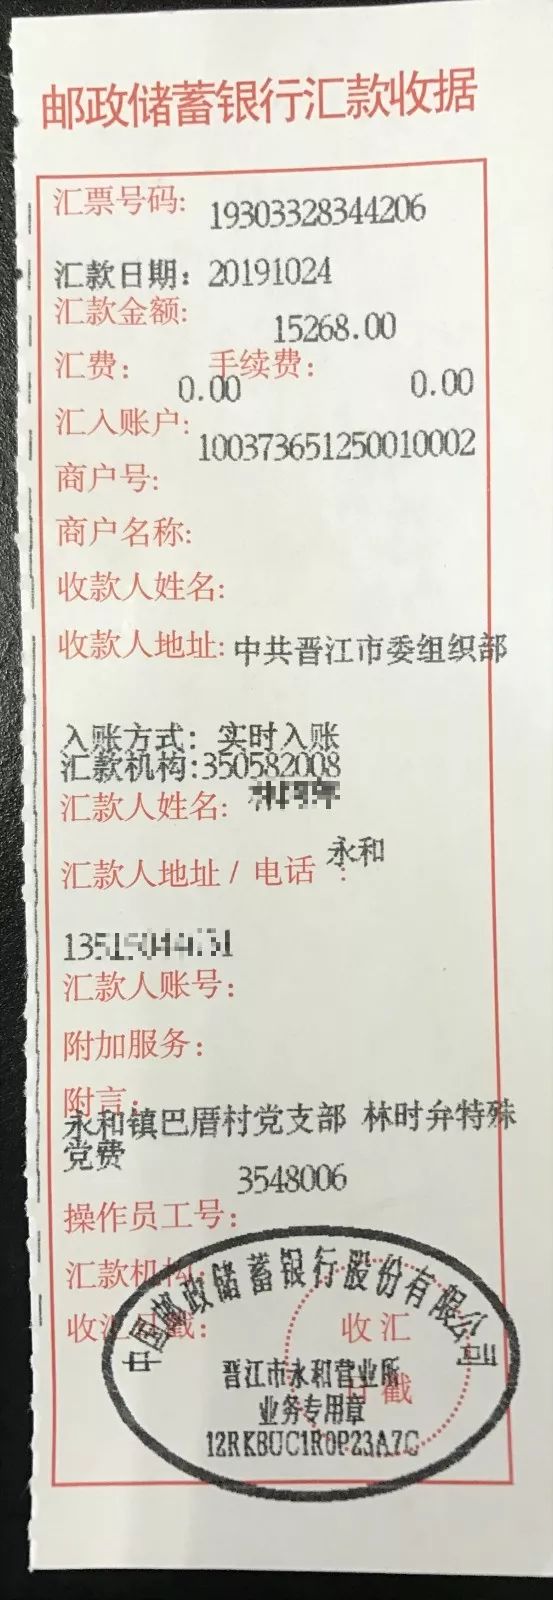 邮政储蓄银行汇款收据
汇票号码: 19303328344206
汇款日期: 20191024
汇款金额: 15268.00
汇费: 0.00 手续费: 0.00
汇入账户: 100373651250010002
商户号:
商户名称:
收款人姓名:
收款人地址: 中共晋江市委组织部
入账方式: 实时入账
汇款机构:350582008
汇款人姓名:
汇款人地址 / 电话: 永和
汇款人账号:
附加服务:
附言:
永和镇巴厝村党支部 林时弁特殊
党费
3548006
操作员工号:
汇款机构:
收汇日戳:
收汇
日戳
中国邮政储蓄银行股份有限公司
晋江市永和营业所
业务专用章
12RKBUC1R0P23A7C